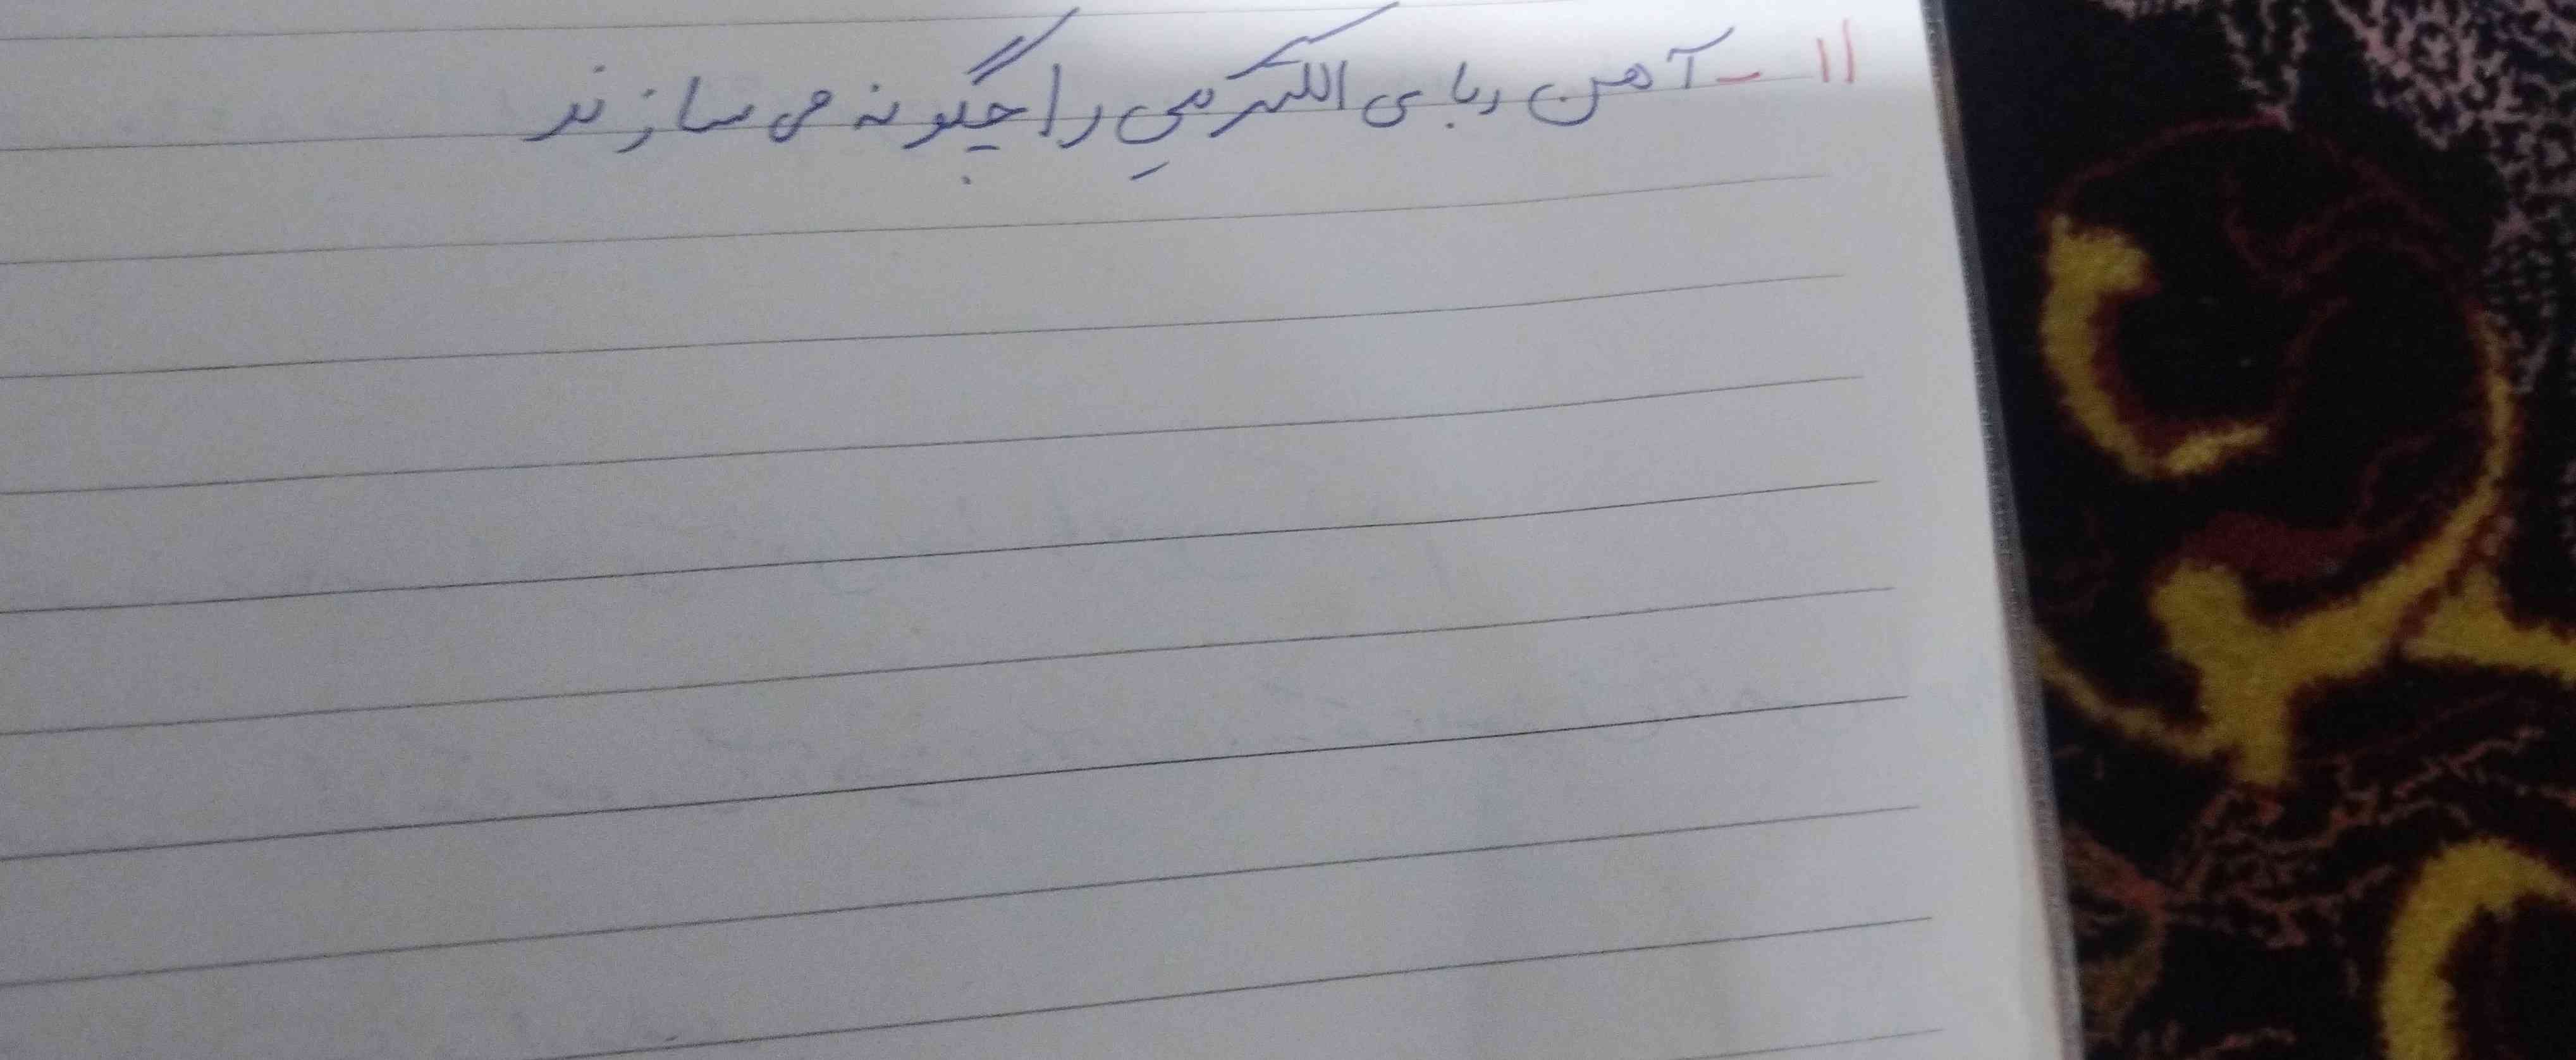 ۱۱ - آهن ربا ی الکتریکی را چگونه می سازند